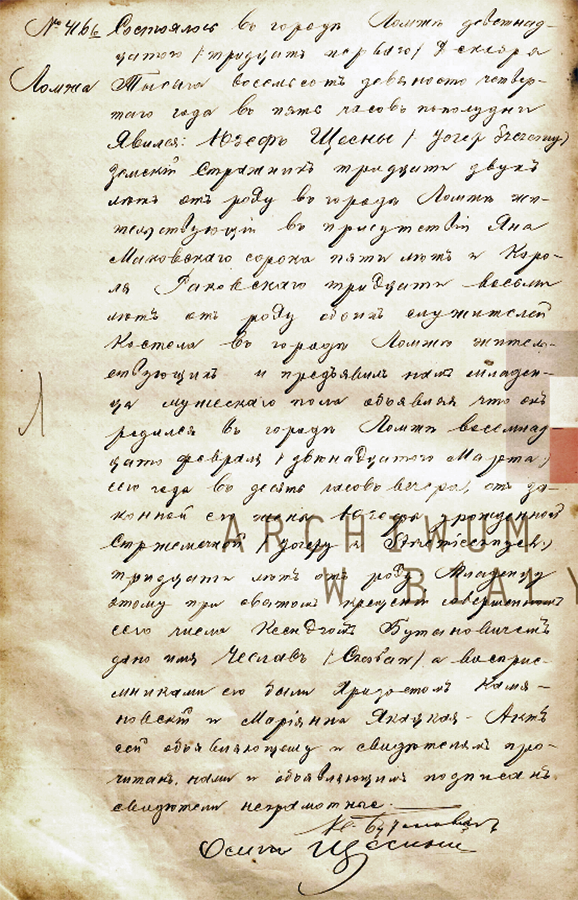 № 416
Ломжа
Состоялось въ городѣ Ломжѣ девятнад-
цатого /тридцать перваго/ Декабря
Тысяча восемьсотъ девяносто четвер-
таго года въ пять часовъ пополудни
Явился: Юзефъ Щесны /Józef Szczęsny/
земскій Стражникъ тридцати двухъ
лѣтъ отъ роду въ городѣ Ломжѣ жи-
тельствующій въ присутствіи Яна
Маковскаго сорока пяти лѣтъ и Каро-
ля Раковскаго тридцати восьми
лѣтъ отъ роду обоихъ служителей
Костела въ городѣ Ломжѣ житель-
ствующихъ и предъявилъ намъ младен-
ца мужескаго пола объявляя что онъ
родился въ городѣ Ломжѣ восемнад-
цато февраля /двѣнадцатого Марта/
сего года въ десять часовъ вечера, отъ за-
конной его жены Юзефы урожденной
тридцати лѣтъ отъ роду Младенцу
этому при святомъ крещеніи совершенномъ
сего числа Ксендзомъ Бутановичемъ
дано имя Чеславъ /Czesław/ а воспріе-
мниками его были Камя-
новскій и Маріянна Якацкая. Актъ
сей объявляющему и свидѣтелямъ про-
читанъ, нами и объявляющимъ подписанъ
свидѣтели неграмотные.
Осипъ Щесный
ARCHIWUM
W BIAŁY